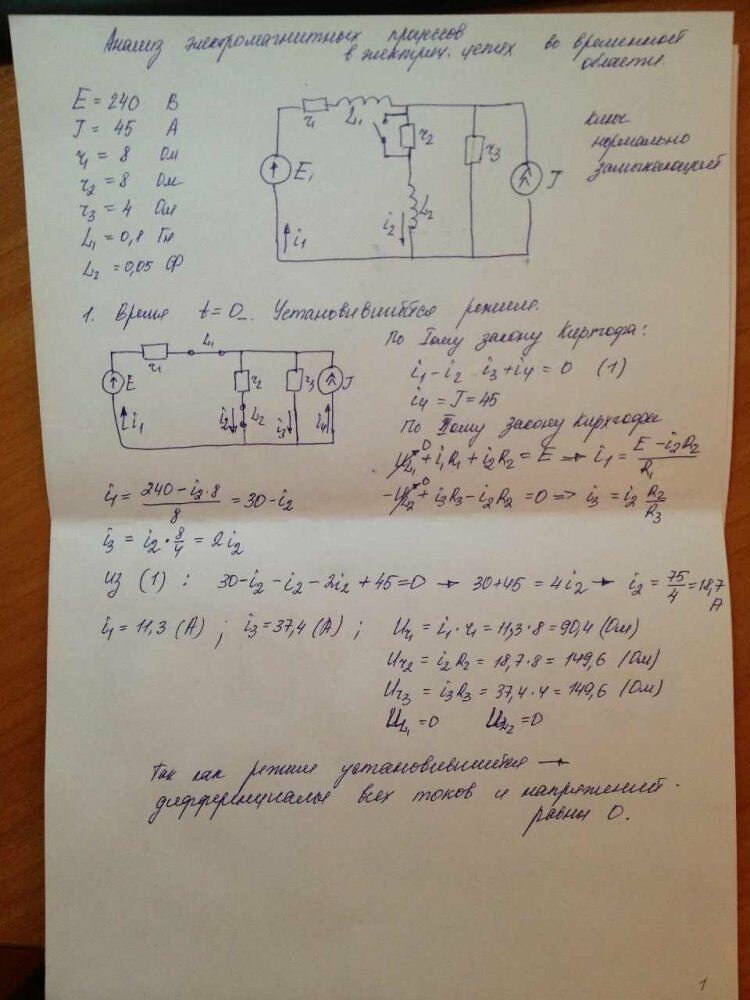 Анализ электромагнитных процессов
в электрич. цепях во временной
области.
E = 240 В
J = 45 А
r1 = 8 Ом
r2 = 8 Ом
r3 = 4 Ом
L1 = 0,1 Гн
L2 = 0,05 Ф
r1 L1 r2 r3 J
E1 L2
i1 i2
ключ
нормально
замыкающий
1. Время t = 0_. Установившийся режим.
r1 L1
E r2 r3 J
i1 i2 L2 i3 i4
По Iому закону Кирхгофа:
i1 - i2 i3 + i4 = 0 (1)
i4 = J = 45
По IIому закону Кирхгофа
UL1 0 + i1R1 + i2R2 = E → i1 = (E - i2R2)/R1
-UL2 0 + i3R3 - i2R2 = 0 => i3 = i2 R2/R3
i1 = (240 - i2·8)/8 = 30 - i2
i3 = i2 · 8/4 = 2i2
Из (1) : 30 - i2 - i2 - 2i2 + 45 = 0 → 30 + 45 = 4i2 → i2 = 75/4 = 18,7
А
i1 = 11,3 (А) ; i3 = 37,4 (А) ;
Ur1 = i1 · r1 = 11,3 · 8 = 90,4 (Ом)
Ur2 = i2R2 = 18,7 · 8 = 149,6 (Ом)
Ur3 = i3R3 = 37,4 · 4 = 149,6 (Ом)
UL1 = 0 UL2 = 0
Так как режим установившийся →
дифференциалы всех токов и напряжений
равны 0.
1